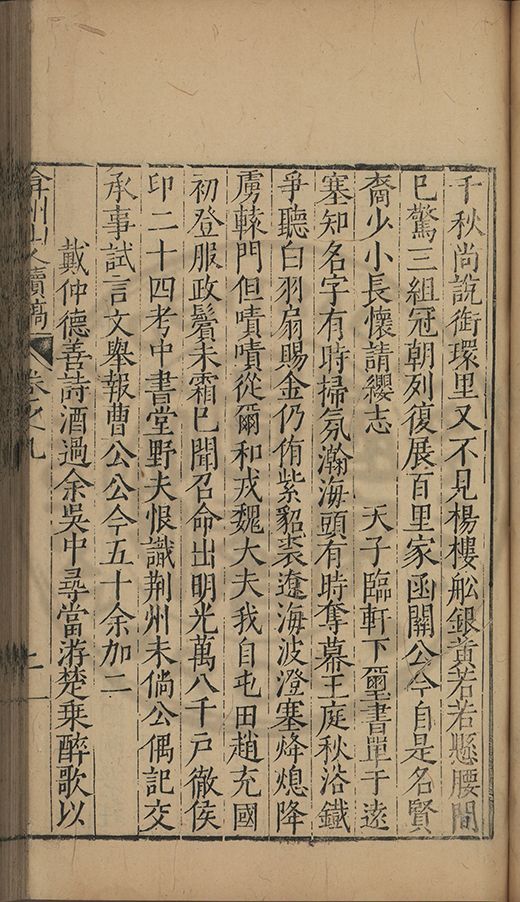 千秋尚說銜環里又不見楊樓舩銀黃若若懸腰間
已驚三組冠朝列復展百里家函關公今自是名賢
裔少小長懷請纓志　天子臨軒下璽書單于遠
塞知名字有時掃氛瀚海頭有時奪幕王庭秋浴鐵
爭聽白羽扇賜金仍侑紫貂裘遼海波澄塞烽熄降
虜轅門但嘖嘖從爾和戎魏大夫我自屯田趙充國
初登服政鬢未霜已聞召命出明光萬八千戶徹侯
印二十四考中書堂野夫恨識荆州未倘公偶記交
承事試言文舉報曹公公今五十余加二
戴仲德善詩酒過余吳中尋當游楚乘醉歌以
弇州山人續稿　卷之九